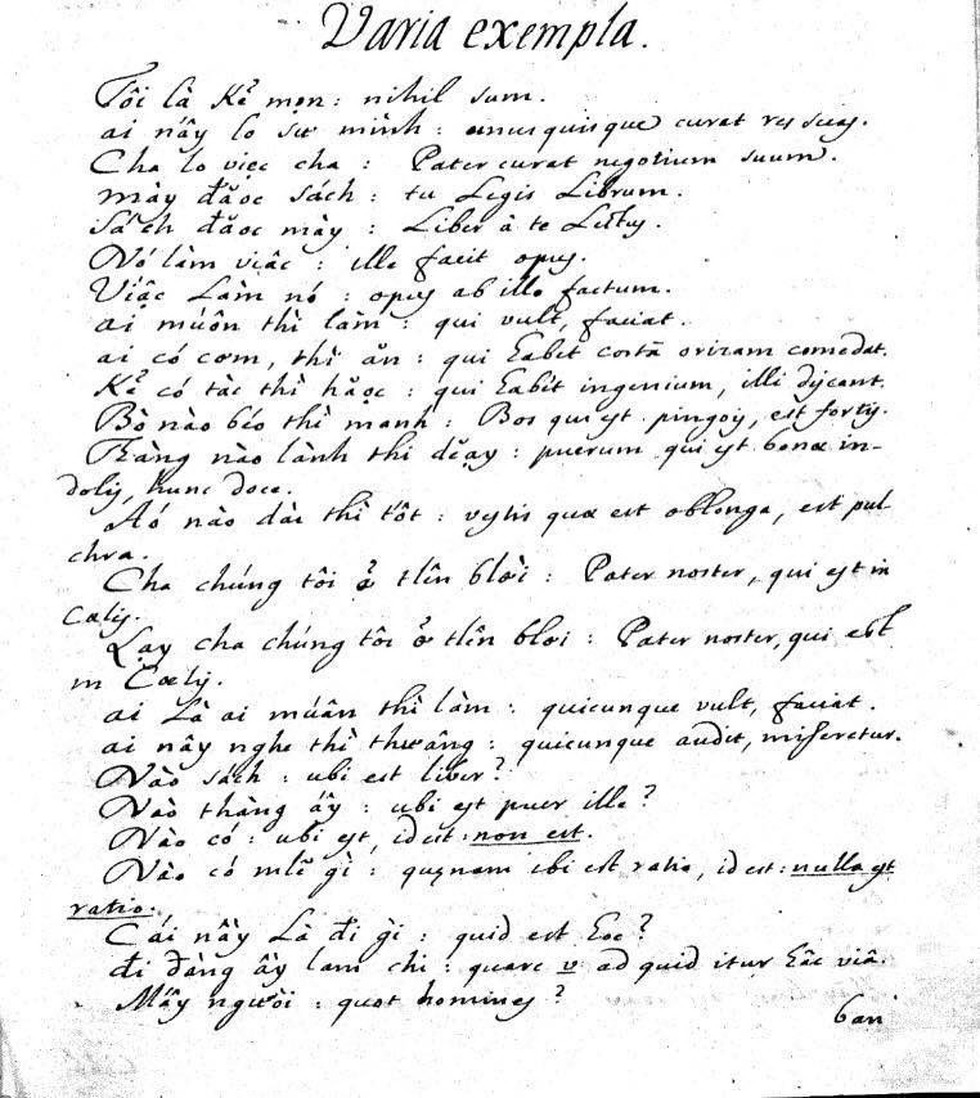 Varia exempla.
Tôi là Kẻ mọn : nihil sum.
ai nấy lo sự mình : unusquisque curat res suas.
Cha lo viec cha : Pater curat negotium suum.
mày đăọc sách : tu Legis Librum.
Sách đăọc mày : Liber à te Lectus.
Nó làm viậc : ille facit opus.
Viậc Làm nó : opus ab illo factum.
ai múôn thì làm : qui vult, faciat.
ai có cơm, thì ăn : qui habet coctā orizam comedat.
Kẻ có tàc thì hăọc : qui habet ingenium, illi discant.
Bò nào béo thì manh : Bos qui est pinguis, est fortis.
Thàng nào lành thi dĕạy : puerum qui est bonæ in-
dolis, hunc doce.
Aó nào dài thì tốt : vestis quæ est oblonga, est pul
chra.
Cha chúng tôi ở tlên blời : Pater noster, qui est in
Cælis.
Lạy cha chúng tôi ở tlên blơi : Pater noster, qui est
in Cœlis.
ai Là ai múân thì làm : quicunque vult, faciat.
ai nấy nghe thì thưâng : quicunque audit, misereretur.
Nào sách : ubi est liber?
Nào thàng ấy : ubi est puer ille?
Nào có : ubi est, id est : non est.
Nào có mlẽ gì : quænam ibi est ratio, id est : nulla est
ratio.
Cái nầy Là đi gì : quid est hoc?
đi đàng ấy lam chi : quare v ad quid itur hâc viâ.
Mấy người : quot homines?
ban